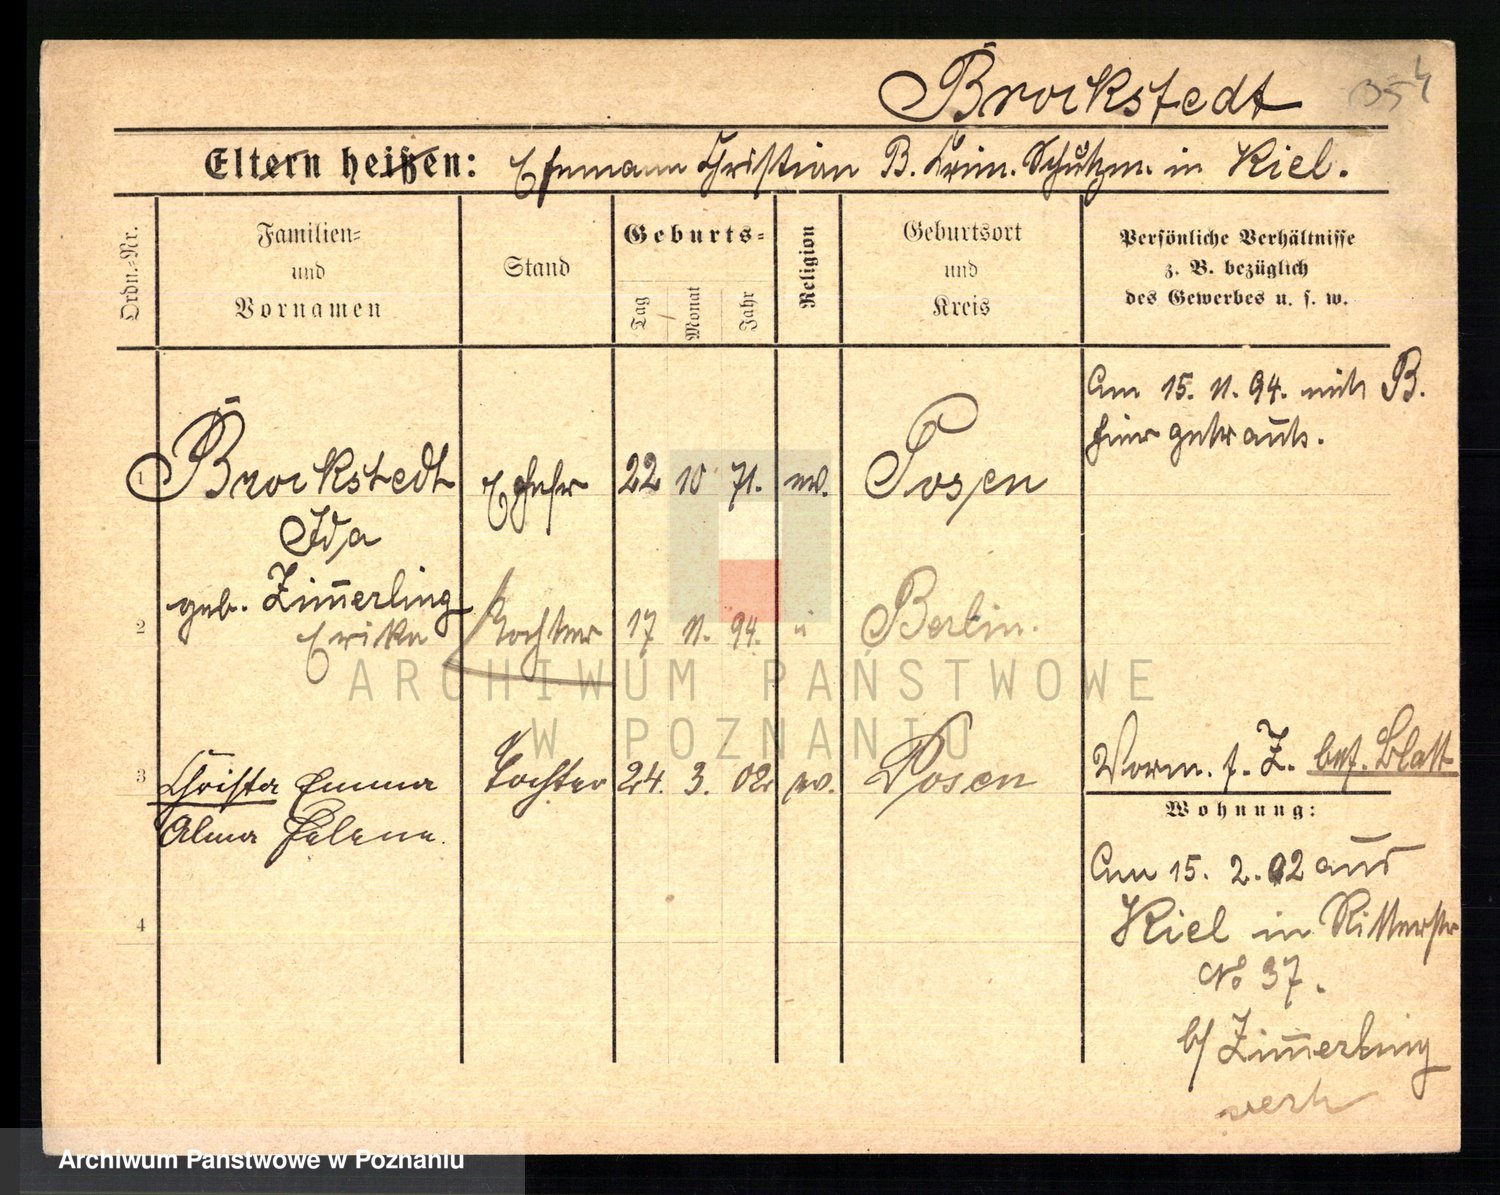 Brockstedt 354
Eltern heißen: Ehemann Christian B. Krim. Schutzm. in Kiel.
Ordn.-Nr.
Familien-
und
Vornamen
Stand
Geburts-
Tag
Monat
Jahr
Religion
Geburtsort
und
Kreis
Persönliche Verhältnisse
z. B. bezüglich
des Gewerbes u. s. w.
Am 15. 11. 94. mit B.
hier getraut.
1 Brockstedt Ehefr 22 10 71. ev. Posen
Ida
geb. Zim̄erling
2 Erika Tochter 17 11. 94. " Berlin.
3 Christa Emma Tochter 24. 3. 02 ev. Posen
Alma Helene.
4
Vorm. f. Z. bes. Blatt
Wohnung:
Am 15. 2. 02 aus
Kiel in Ritterstr
No 37.
b/ Zim̄erling
verh
ARCHIWUM PAŃSTWOWE
W POZNANIU
Archiwum Państwowe w Poznaniu